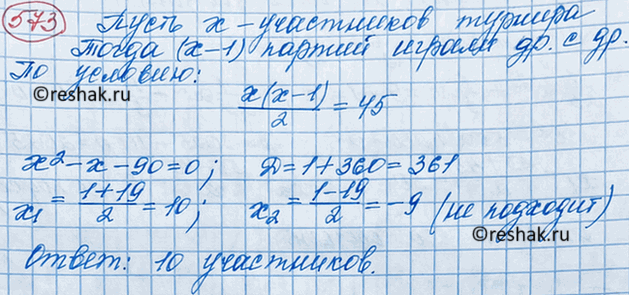 573 Пусть x – участников турнира
Тогда (x-1) партий играли др. с др.
По условию:
©reshak.ru
x(x-1)/2 = 45
x² - x - 90 = 0; D = 1 + 360 = 361
x₁ = (1+19)/2 = 10; x₂ = (1-19)/2 = -9 (не подходит)
©reshak.ru
Ответ: 10 участников.